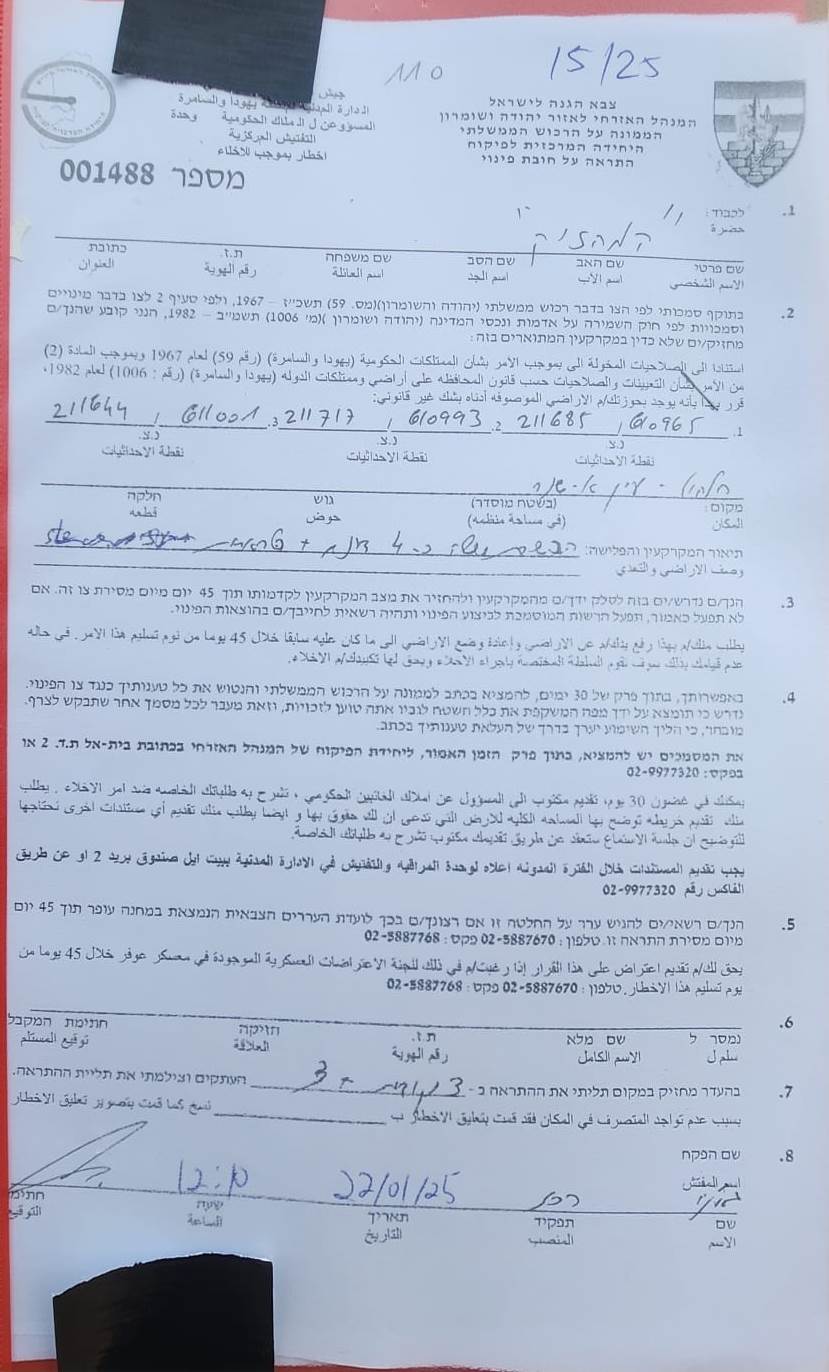 110
15/25
جيش
الادارة المدنية لمنطقة يهودا والسامرة
المسؤول عن الاملاك الحكومية وحدة
التفتيش المركزية
اخطار بموجب للاخلاء
מספר 001488
צבא הגנה לישראל
המנהל האזרחי לאזור יהודה ושומרון
הממונה על הרכוש הממשלתי
היחידה המרכזית לפיקוח
התראה על חובת פינוי
1. לכבוד:
حضرة
המחזיק
שם פרטי שם האב שם הסב שם משפחה ת.ז. כתובת
الاسم الشخصي اسم الاب اسم الجد اسم العائلة رقم الهوية العنوان
2. בתוקף סמכותי לפי הצו בדבר רכוש ממשלתי (יהודה והשומרון)(מס. 59) תשכ״ז – 1967, ולפי סעיף 2 לצו בדבר מינויים
וסמכויות לפי חוק השמירה על אדמות ונכסי המדינה (יהודה ושומרון )(מ׳ 1006) תשמ״ב – 1982, הנני קובע שהנך/ם
מחזיק/ים שלא כדין במקרקעין המתוארים בזה:
استنادا الى الصلاحيات المخولة الى بموجب الامر بشأن الممتلكات الحكومية (يهودا والسامرة) (رقم 59) لعام 1967 وبموجب المادة (2)
من الامر بشأن التعيينات والصلاحيات حسب قانون المحافظه على أراضي وممتلكات الدوله (يهودا والسامرة) (رقم : 1006) لعام 1982،
قرر بهذا بأنه يوجد بحوزتك/م الاراضي الموصوفه أدناه بشك غير قانوني:
1. 211685 / 610965 2. 211717 / 610993 3. 211644 / 611001
נ.צ. נ.צ. נ.צ.
نقطة الاحداثيات نقطة الاحداثيات نقطة الاحداثيات
חלקה גוש (בשטח מוסדר) מקום:
قطعه حوض (في مساحة منظمه) المكان
תיאור המקרקעין והפלישה:
وصف الاراضي والتعدي
3. הנך/ם נדרש/ים בזה לסלק ידך/ם מהמקרקעין ולהחזיר את מצב המקרקעין לקדמותו תוך 45 יום מיום מסירת צו זה. אם
לא תפעל כאמור, תפעל הרשות המוסמכת לביצוע הפינוי ותהיה רשאית לחייבך/ם בהוצאות הפינוי.
يطلب منك/م بهذا رفع يدك/م عن الاراضي وإعادة وضع الاراضي الى ما كان عليه سابقا خلال 45 يوما من يوم تسليم هذا الامر. في حاله
عدم قيامك بذلك سوف تقوم السلطة المختصة باجراء الاخلاء ويحق لها تكبيدك/م الاخلاء.
4. באפשרותך, בתוך פרק של 30 ימים, להמציא בכתב לממונה על הרכוש הממשלתי והנטוש את כל טענותיך כנגד צו הפינוי.
נדרש כי תומצא על ידך מפה המשקפת את כלל השטח לגביו אתה טוען לזכויות, וזאת מעבר לכל מסמך אחר שתבקש לצרף.
מובהר, כי הליך השימוע יערך בדרך של העלאת טענותיך בכתב.
את המסמכים יש להמציא, בתוך פרק הזמן האמור, ליחידת הפיקוח של המנהל האזרחי בכתובת בית-אל ת.ד. 2 או
בפקס: 02-9977320
يمكنك في غضون 30 يوم، تقديم مكتوب الى المسؤول عن املاك الغائبين الحكومي ، تشرح به طلباتك الخاصه ضد امر الاخلاء . يطلب
منك تقديم خريطه توضح بها المساحه الكليه للارض التي تدعى ان لك حقوق بها و ايضا يطلب منك تقديم أي مستندات اخرى تحتاجها
للتوضيح ان جلسة الاستماع ستعقد عن طريق تقديمك مكتوب تشرح به طلباتك الخاصة.
يجب تقديم المستندات خلال الفترة المدونه اعلاه لوحدة المراقبه والتفتيش في الادارة المدنية ببيت ايل صندوق بريد 2 او عن طريق
الفاكس رقم 02-9977320
5. הנך/ם רשאי/ים להגיש ערר על החלטה זו אם רצונך/ם בכך לועדת העררים הצבאית הנמצאת במחנה עופר תוך 45 יום
מיום מסירת התראה זו. טלפון: 02-5887670 פקס: 02-5887768
يحق لك/م تقديم اعتراض على هذا القرار إذا رغبت/م في ذلك للجنة الاعتراضات العسكرية الموجودة في معسكر عوفر خلال 45 يوما من
يوم تسليم هذا الاخطار. טלפון: 02-5887670 פקס: 02-5887768
6. נמסר ל שם מלא ת.ז. חזיקה חתימת המקבל
سلم ل الاسم الكامل رقم الهوية العلاقة توقيع المستلم
7. בהעדר מחזיק במקום תליתי את ההתראה ב- העתקים וצילמתי את תליית ההתראה.
بسبب عدم تواجد المتصرف في المكان فقد قمت بتعليق الاخطار ب نسخ كما قمت بتصوير تعليق الاخطار
8. שם הפקח
اسم المفتش
22/01/25
שם תפקיד תאריך שעה חתימה
الاسم المنصب التاريخ الساعة التوقيع